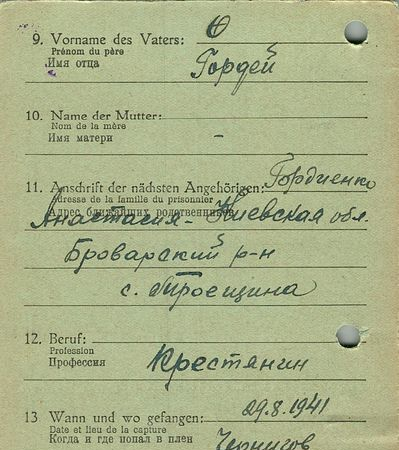 9. Vorname des Vaters:
Prénom du père
Имя отца
Гордей
10. Name der Mutter:
Nom de la mère
Имя матери
-
11. Anschrift der nächsten Angehörigen: Гордиенко
Adresse de la famille du prisonnier
Адрес ближайших родственников
Анастасия - Киевская обл.
Броварский р-н
с. Троещина
12. Beruf:
Profession
Профессия
Крестянин
13 Wann und wo gefangen: 29.8.1941
Date et lieu de la capture
Когда и где попал в плен
Чернигов